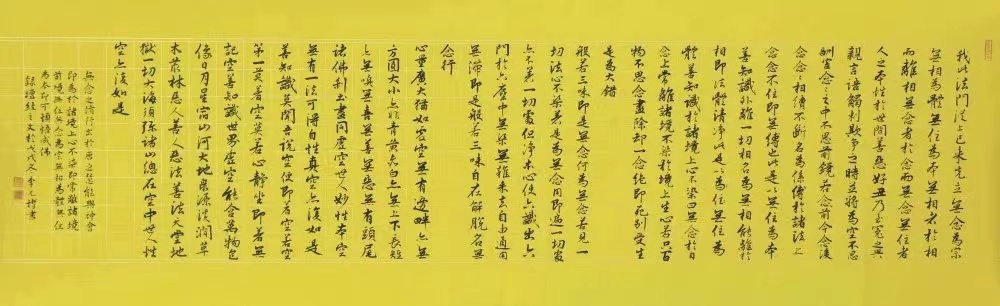 我此法門從上已來先立無念為宗
無相為體無住為本無相者於相
而離相無念者於念而無念無住者
人之本性於世間善惡好丑乃至冤之與
親言語觸刺欺爭之時並將為空不思
酬害念念之中不思前鏡若念前今念後
念念念相續不斷名為係縛於諸法上
念念不住即無縛也此是以無住為本
善知識外離一切相名為無相能離於
相即法體清淨此是以為住為
體善知識於諸境上心不染曰無念於自
念上常離諸境不染於境上生心若只百
物不思念盡除却一念絕即死別受生
是為大錯
般若三昧即是無念何為無念若見一
切法心不染著是為無念用即遍一切處
亦不著一切處但淨本心使六識出六
門於六塵中無染無雜來去自由通用
無滯即是般若三昧自在解脫名無
念行
心量廣大猶如空空無有邊畔亦無
方圓大小亦非青黃赤白亦無上下長短
亦無嗔無喜無善無惡無有頭尾
諸佛剎土盡同虛空世人妙性本空
無有一法可得自性真空亦復如是
善知識莫聞吾說空便即著空若空
第一莫著空莫若心靜坐即著無
記空善知識世界虛空能含萬物色
像日月星宿山河大地泉源溪澗草
木叢林惡人善人惡法善法天堂地
獄一切大海須彌諸山總在空中世人性
空亦復如是
無念之修行出於唐之慧能與神會
即為於諸境上心不染即常離諸境
前境所住無念為宗無相為體無住
為本即可頓悟成佛
錄壇經之文於戊戌冬李元博書